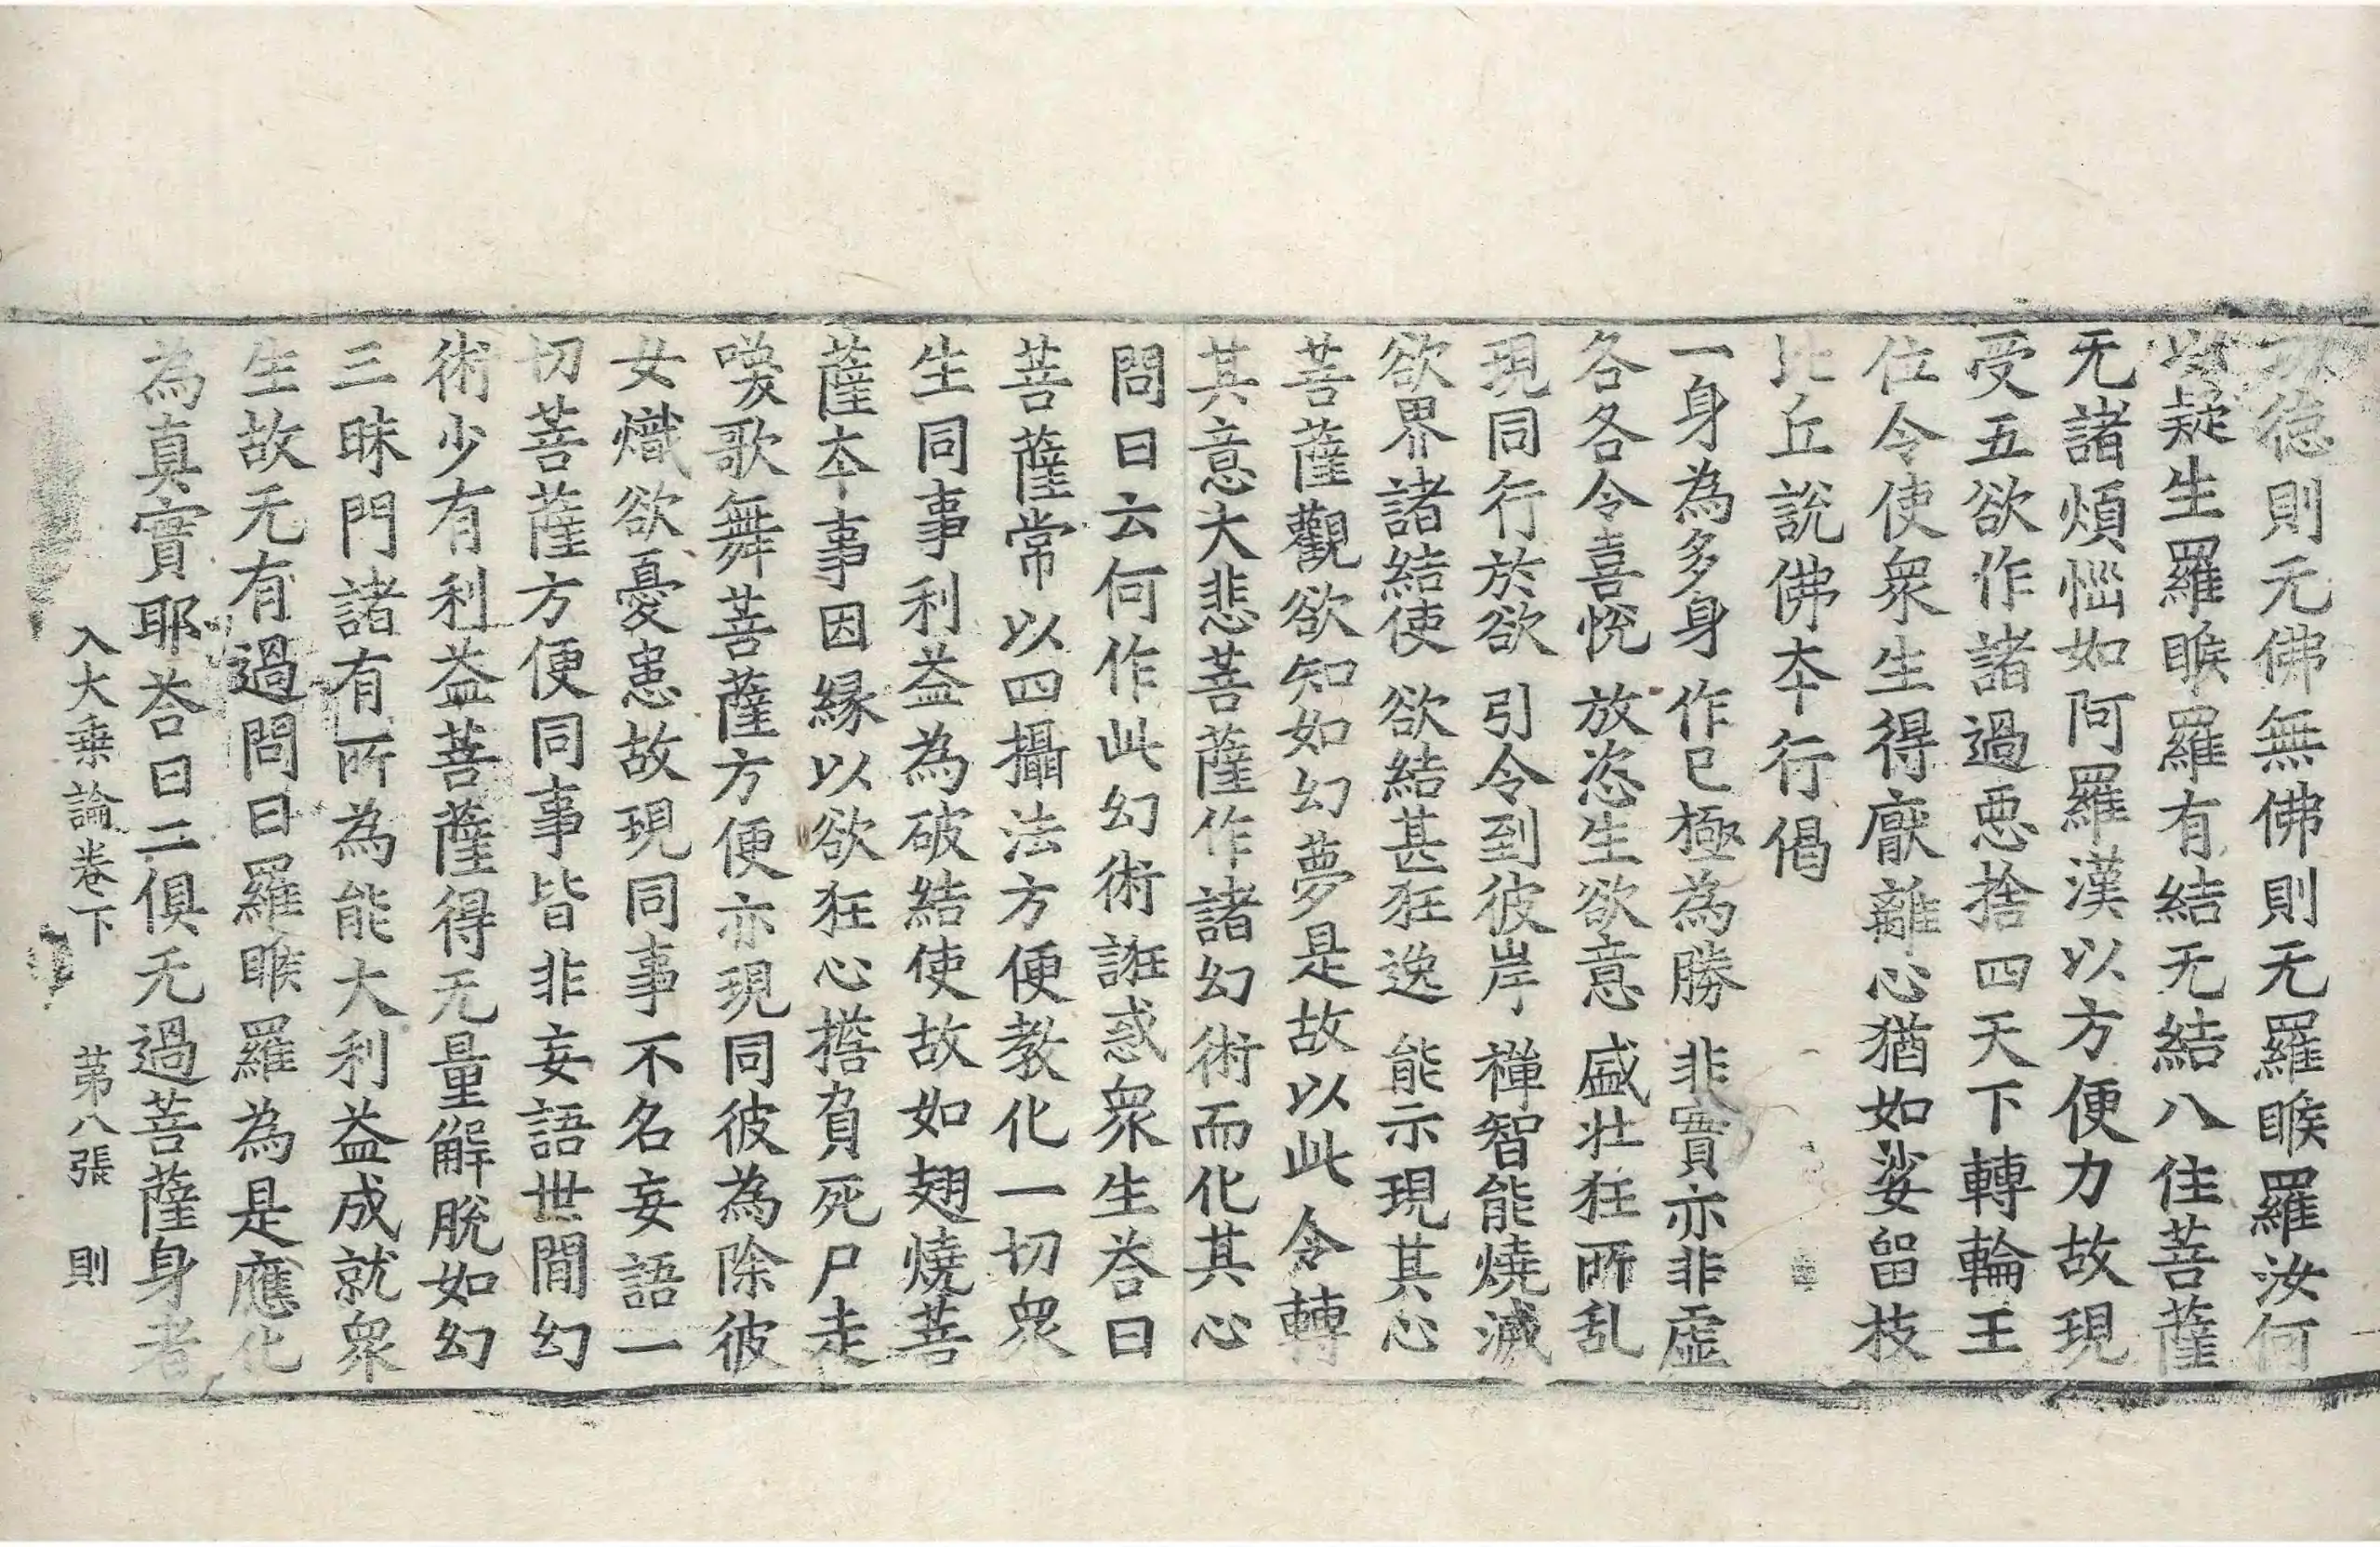 功德則无佛無佛則无羅睺羅汝何
以疑生羅睺羅有結无結八住菩薩
无諸煩惱如阿羅漢以方便力故現
受五欲作諸過惡捨四天下轉輪王
位令使衆生得厭離心猶如娑留枝
比丘說佛夲行偈
一身為多身 作已極為勝 非實亦非虛
各各令喜悅 放恣生欲意 盛壮狂所乱
現同行於欲 引令到彼岸 禪智能燒滅
欲界諸結使 欲結甚狂逸 能示現其心
菩薩觀欲知如幻夢是故以此令轉
其意大悲菩薩作諸幻術而化其心
問曰云何作此幻術誑惑衆生荅曰
菩薩常以四攝法方便教化一切衆
生同事利益為破結使故如翅燒菩
薩夲事因縁以欲狂心擔負死尸走
𠷣歌舞菩薩方便亦現同彼為除彼
女熾欲憂患故現同事不名妄語一
切菩薩方便同事皆非妄語世間幻
術少有利益菩薩得无量解脫如幻
三昧門諸有所為能大利益成就衆
生故无有過問曰羅睺羅為是應化
為真實耶荅曰二俱无過菩薩身者
入大乗論卷下 苐八張 則